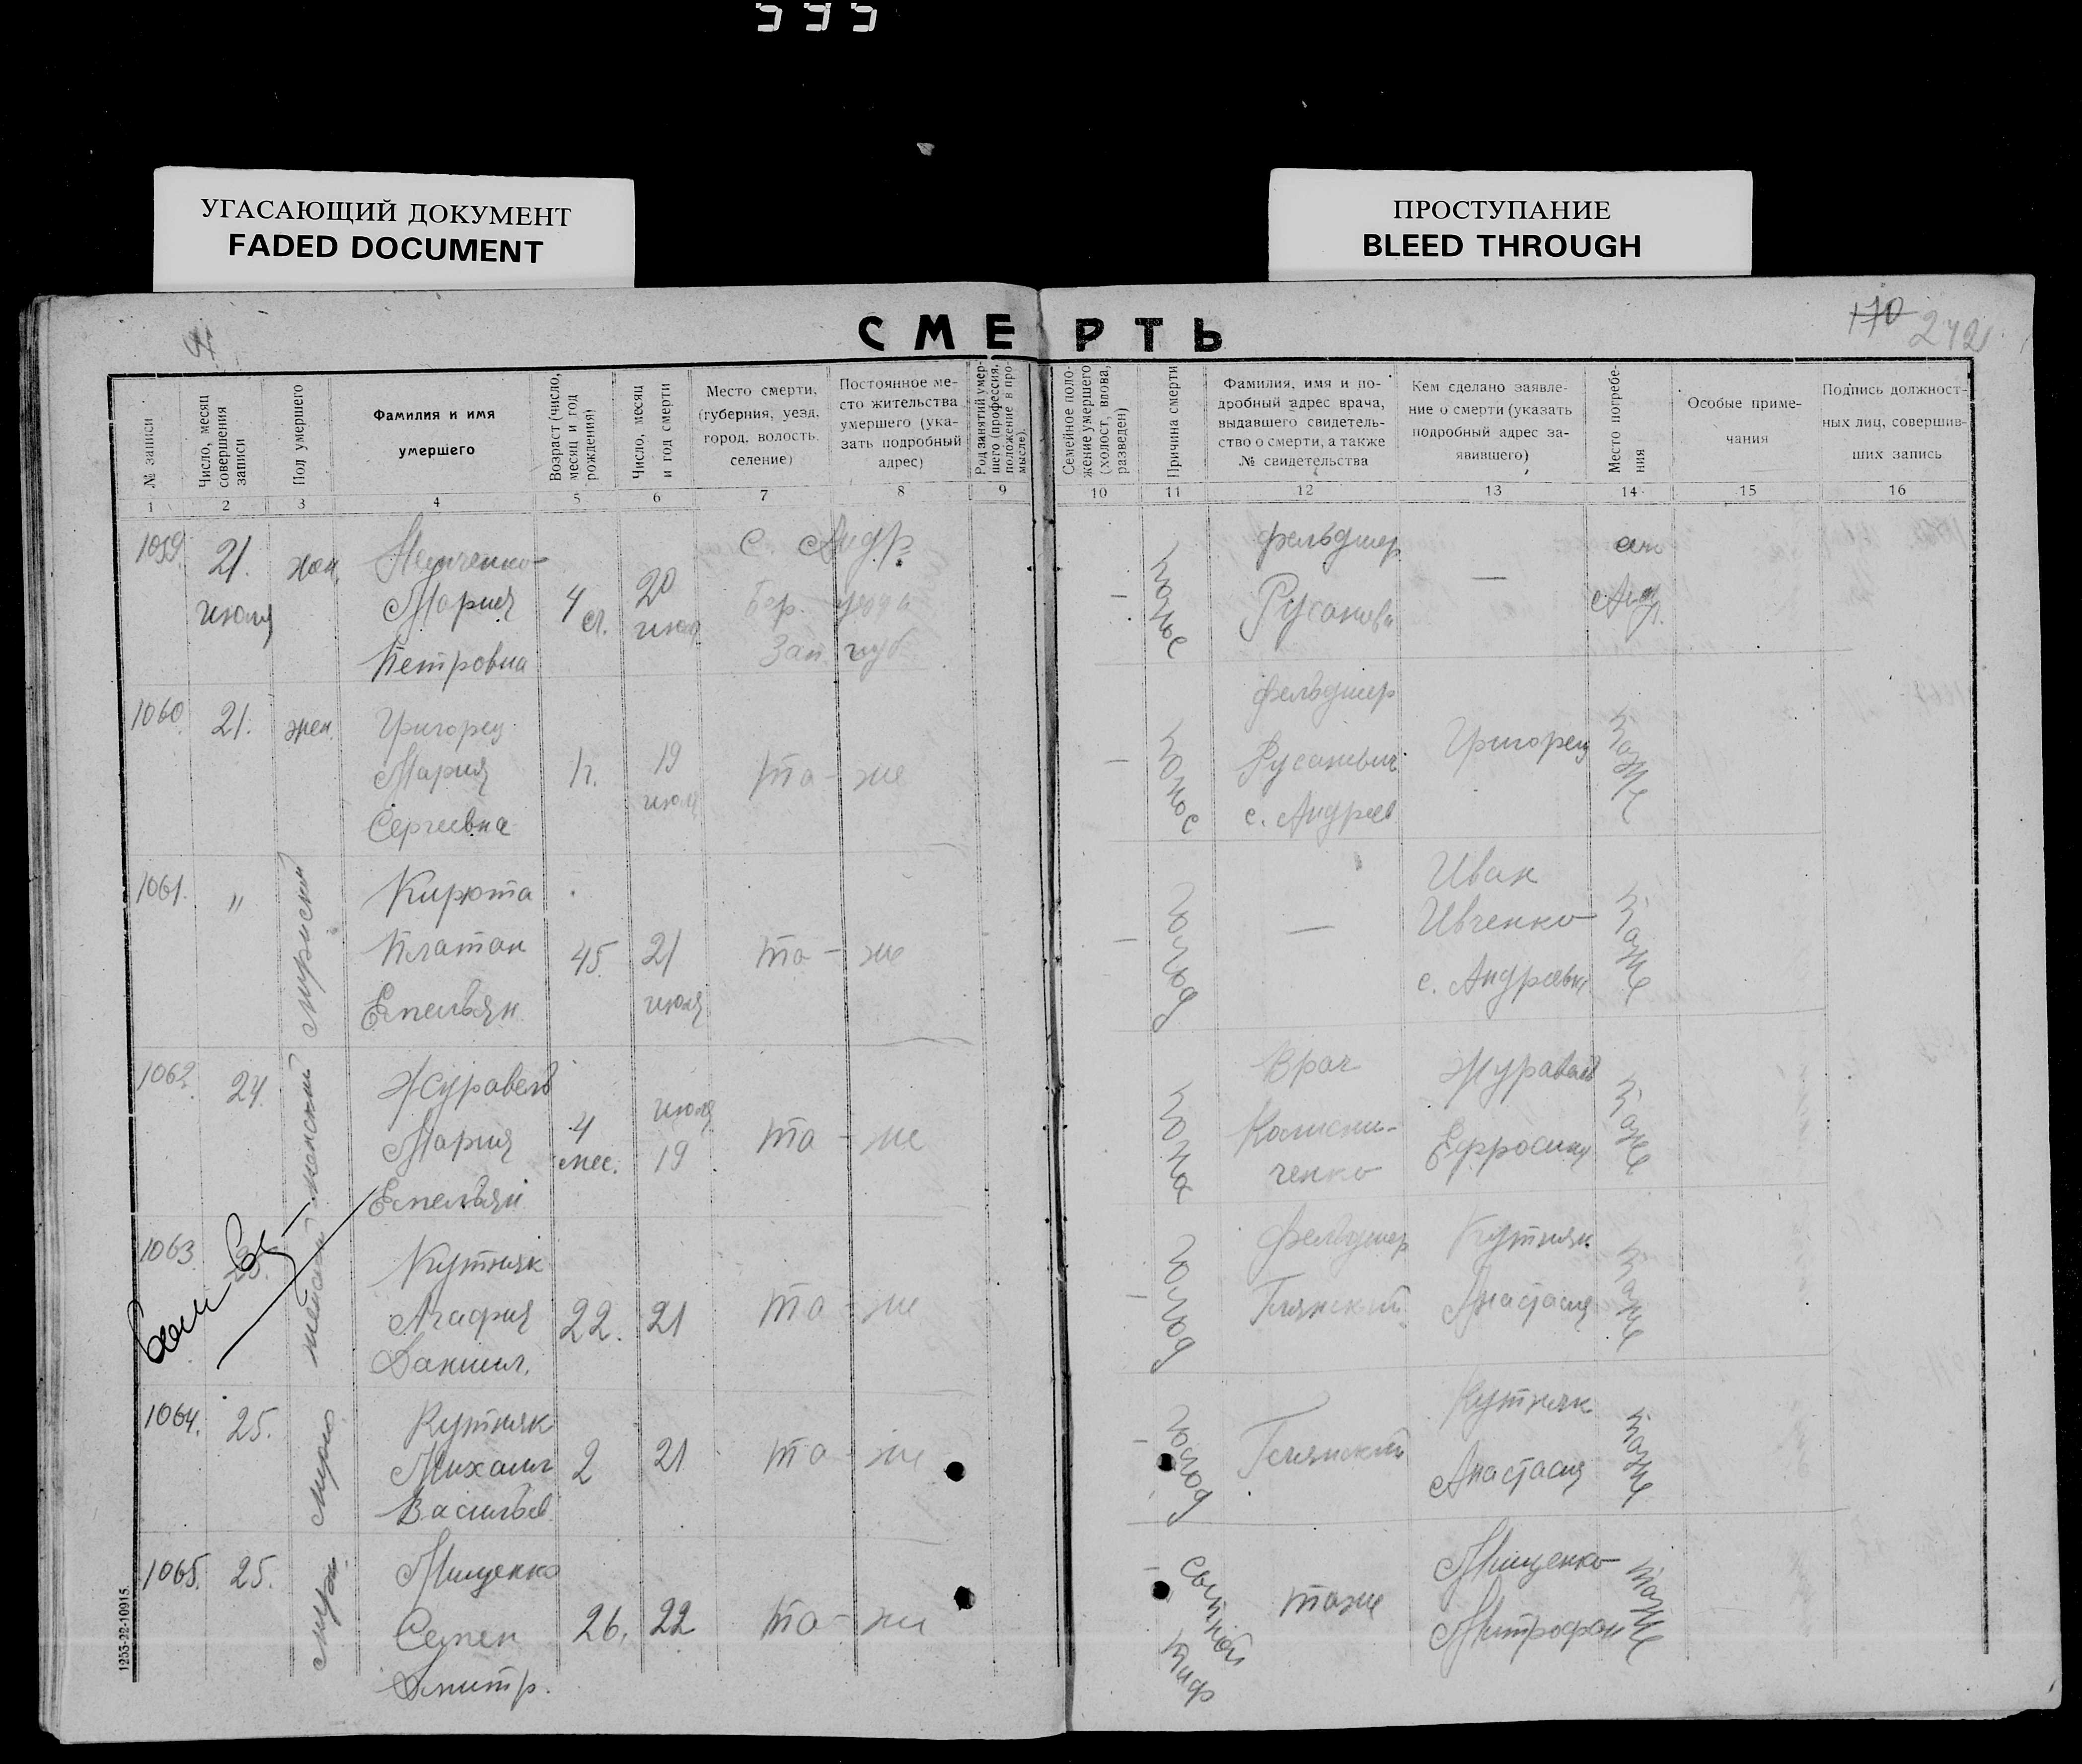 595
УГАСАЮЩИЙ ДОКУМЕНТ
FADED DOCUMENT
ПРОСТУПАНИЕ
BLEED THROUGH
СМЕРТЬ
170 242
№ записи
Число, месяц совершения записи
Пол умершего
Фамилия и имя умершего
Возраст (число, месяц и год рождения)
Число, месяц и год смерти
Место смерти, (губерния, уезд, город, волость, селение)
Постоянное ме-
сто жительства
умершего (ука-
зать подробный
адрес)
Род занятий умер-
шего (профессия,
положение в про-
мысле).
Семейное поло-
жение умершего
(холост, вдова,
разведен)
Причина смерти
Фамилия, имя и по-
дробный адрес врача,
выдавшего свидетель-
ство о смерти, а также
№ свидетельства
Кем сделано заявле-
ние о смерти (указать
подробный адрес за-
явившего)
Место погребе-
ния
Особые приме-
чания
Подпись должност-
ных лиц, совершив-
ших запись
1 2 3 4 5 6 7 8 9 10 11 12 13 14 15 16
1059. 21. июля жен.
Мария
Петровна
4 20 июля
с. Андр.
Бер. уезда
Зап. губ.
— понос фельдшер
—
Андр.
1060. 21. жен. Григорец
Мария
Сергеевна
1г. 19 июля
то-же
— понос фельдшер
с. Андреев
Григорец
тоже
1061. " мужской
Кирюта
Платон
Емельян
45. 21 июля
то-же
— голод —
Иван
Ивченко
с. Андреевка
тоже
1062. 24. женский
Журавель
Мария
Емельян
4 мес. июля 19
то-же
Врач
Колисни-
ченко
Журавель
Ефросиния
тоже
1063. 25. женский
Кутняк
Агафия
Даниил.
22. 21
то-же
— голод фельдшер
Кутняк
Анастасия
тоже
1064. 25.
Кутняк
Михаил
Васильев.
2 21
то-же
— голод
Кутняк
Анастасия
тоже
1065. 25.
Мищенко
Семен
Дмитр.
26. 22
то-же
— сыпной тиф тоже
Мищенко
Митрофан
тоже
1255-22-10915.